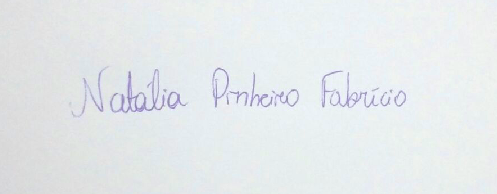 Natália Pinheiro Fabrício